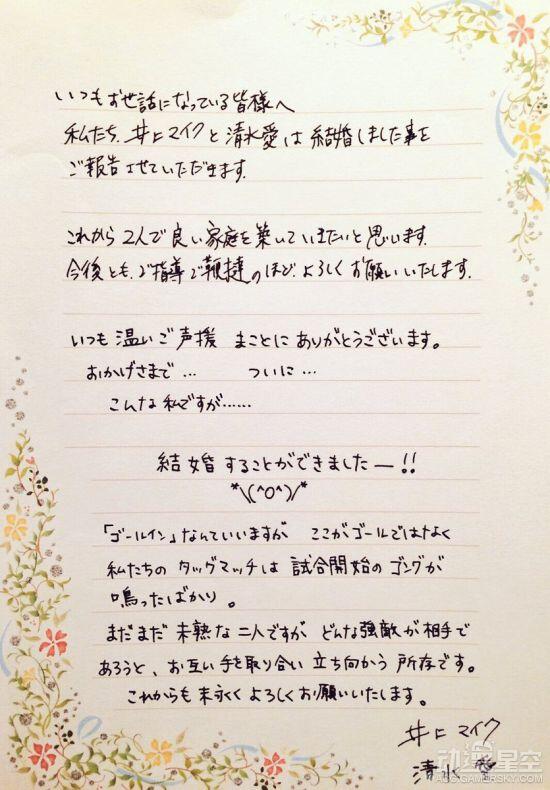 いつもお世話になっている皆様へ
私たち、井上マイクと清水愛は結婚しました事を
ご報告させていただきます。
これから2人で良い家庭を築いていきたいと思います。
今後とも、ご指導ご鞭撻のほど、よろしくお願いいたします。
いつも温いご声援 まことにありがとうございます。
おかげさまで… ついに…
こんな私ですが……
結婚することができましたー!!
*\(^o^)/*
「ゴールイン」なんていいますが ここがゴールではなく
私たちのタッグマッチは 試合開始のゴングが
鳴ったばかり。
まだまだ未熟な二人ですが どんな強敵が相手で
あろうと、お互い手を取り合い立ち向かう所存です。
これからも末永くよろしくお願いいたします。
井上マイク
清水 愛
动漫星空
ACG.GAMERSKY.COM